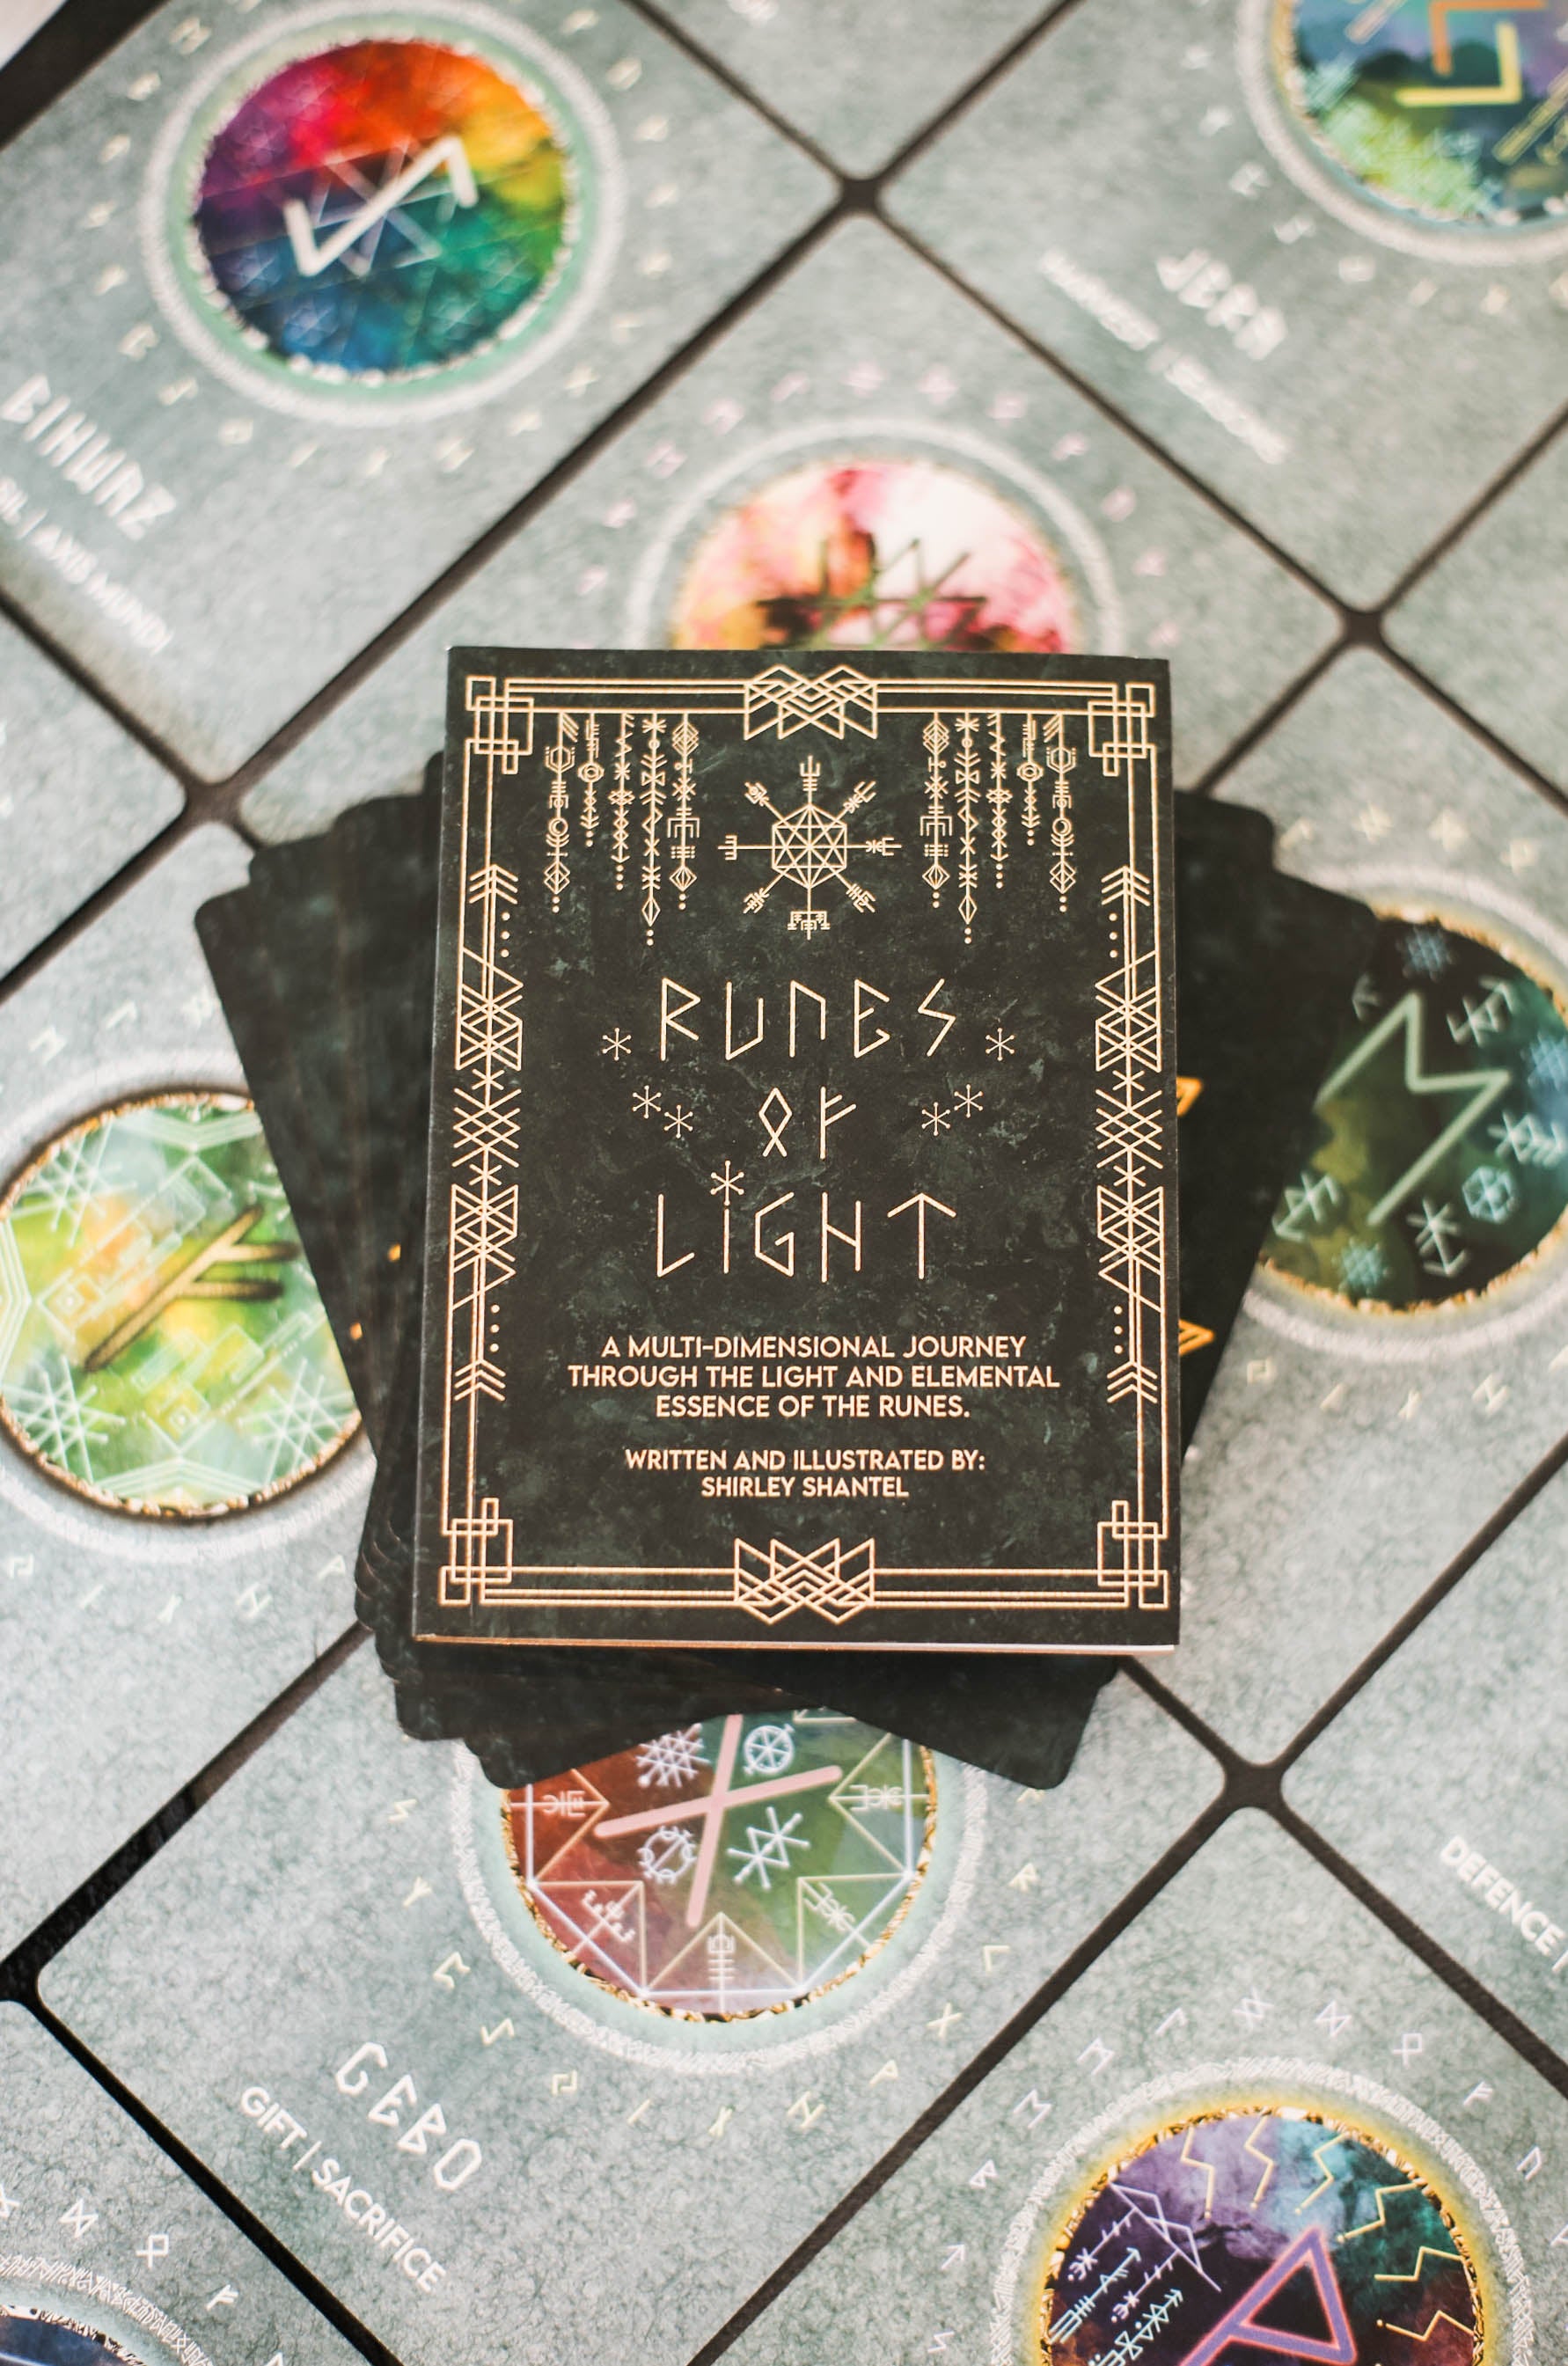 EIHWAZ
AXIS MUNDI
JERA
HARVEST | SEASONS
RUNES
OF
LIGHT
A MULTI-DIMENSIONAL JOURNEY
THROUGH THE LIGHT AND ELEMENTAL
ESSENCE OF THE RUNES.
WRITTEN AND ILLUSTRATED BY:
SHIRLEY SHANTEL
DEFENCE
GEBO
GIFT | SACRIFICE